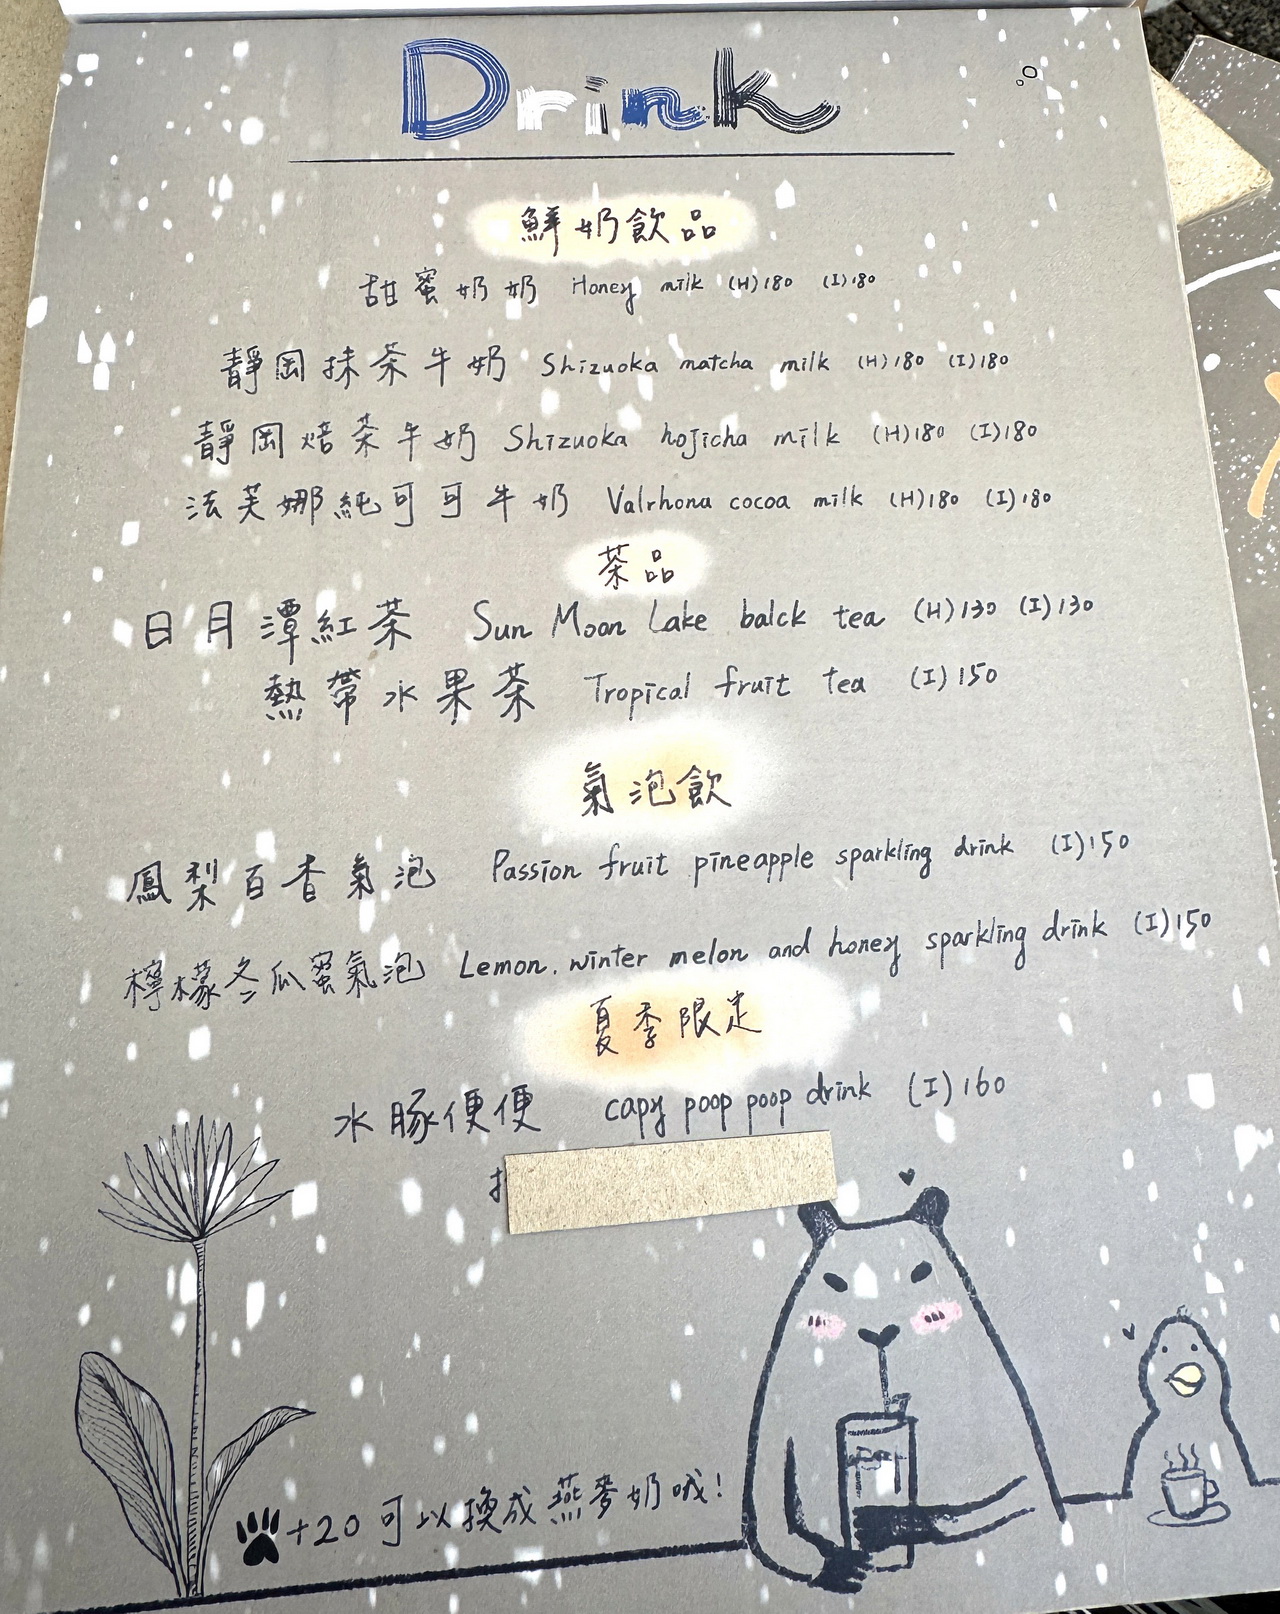 Drink
鮮奶飲品
甜蜜奶奶 Honey milk (H)180 (I)180
靜岡抹茶牛奶 Shizuoka matcha milk (H)180 (I)180
靜岡焙茶牛奶 Shizuoka hojicha milk (H)180 (I)180
法芙娜純可可牛奶 Valrhona cocoa milk (H)180 (I)180
茶品
日月潭紅茶 Sun Moon Lake balck tea (H)130 (I)130
熱帶水果茶 Tropical fruit tea (I)150
氣泡飲
鳳梨百香氣泡 Passion fruit pineapple sparkling drink (I)150
檸檬冬瓜蜜氣泡 Lemon. winter melon and honey sparkling drink (I)150
夏季限定
水豚便便 capy poop poop drink (I)160
+20可以換成燕麥奶哦!